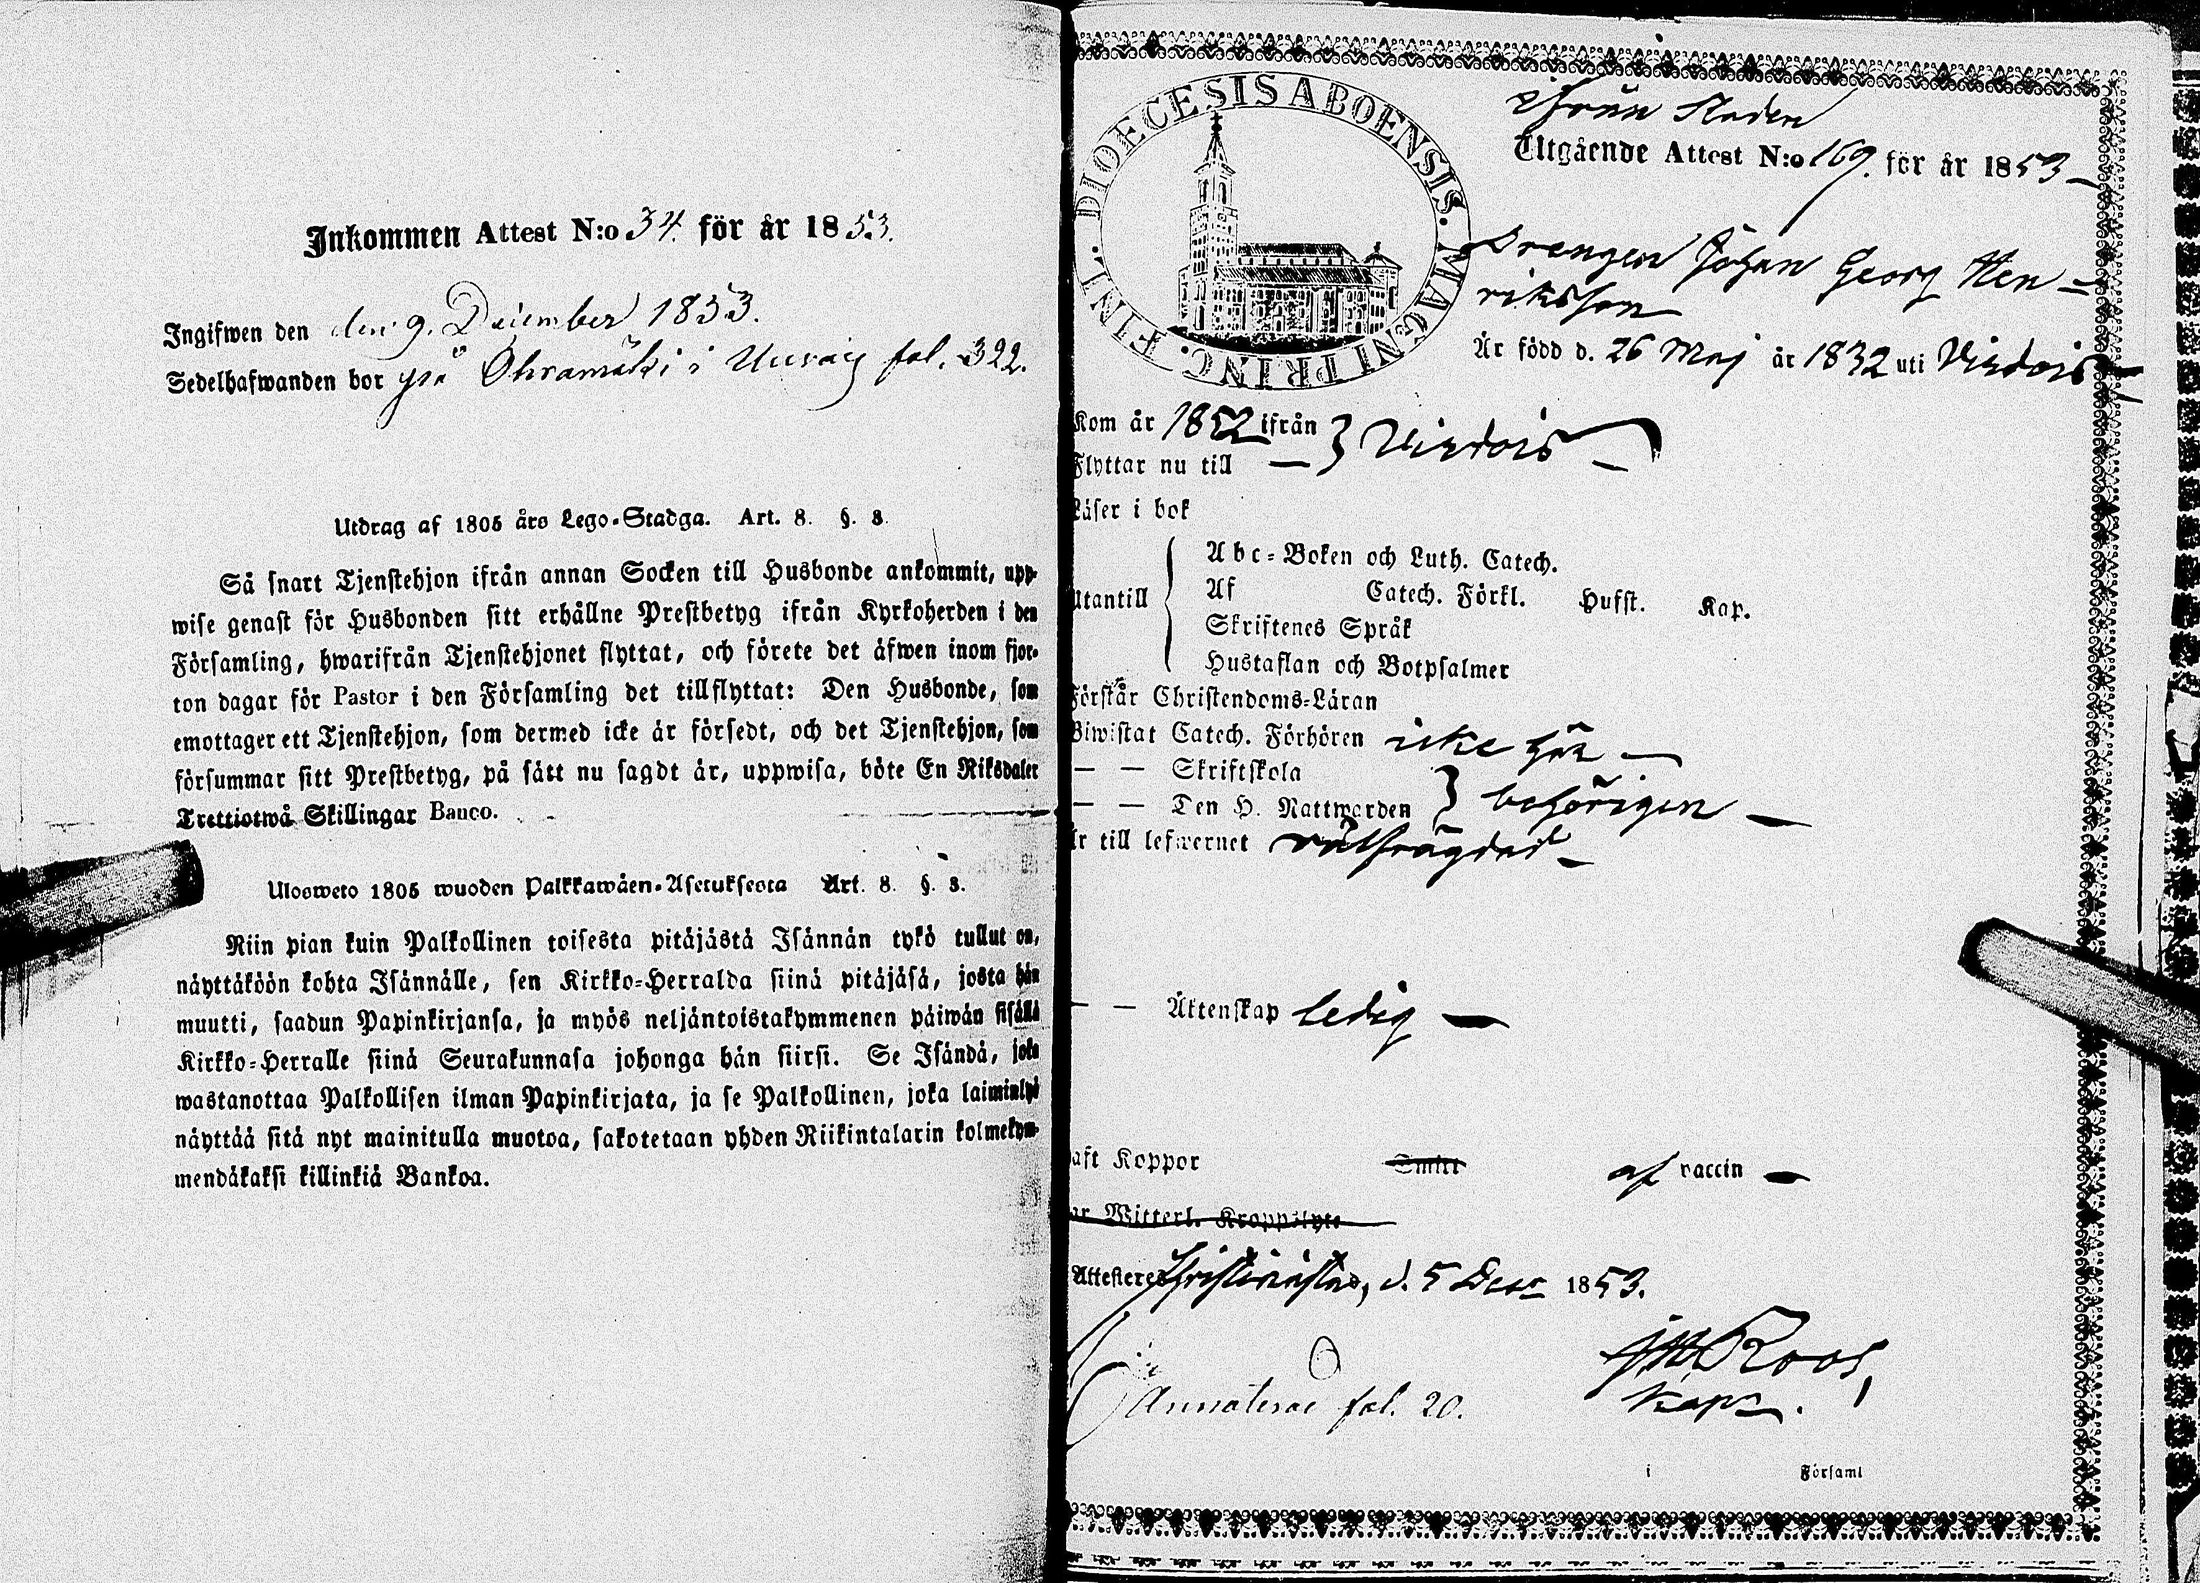 Inkommen Attest N:o 34. för år 1853.
Ingifwen den den 9. December 1853.
Sedelhafwanden bor på Ohramäki i fol. 322.
Utdrag af 1805 års Lego-Stadga. Art. 8. §. 3.
Så snart Tjenstehjon ifrån annan Socken till Husbonde ankommit, upp-
wise genast för Husbonden sitt erhållne Prestbetyg ifrån Kyrkoherden i den
Församling, hwarifrån Tjenstehjonet flyttat, och förete det äfwen inom fjor-
ton dagar för Pastor i den Församling det tillflyttat: Den Husbonde, som
emottager ett Tjenstehjon, som dermed icke är försedt, och det Tjenstehjon, som
försummar sitt Prestbetyg, på sätt nu sagdt är, uppwisa, böte En Riksdaler
Trettiotwå Skillingar Banco.
Ulosweto 1805 wuoden Palkkawäen-Asetuksesta Art. 8. §. 3.
Niin pian kuin Palkollinen toisesta pitäjästä Isännän tykö tullut on,
näyttäköön kohta Isännälle, sen Kirkko-Herralda siinä pitäjäsä, josta hän
muutti, saadun Papinkirjansa, ja myös neljäntoistakymmenen päiwän sisällä
Kirkko-Herralle siinä Seurakunnasa johonga hän siirsi. Se Isändä, joka
wastanottaa Palkollisen ilman Papinkirjata, ja se Palkollinen, joka laiminlyö
näyttää sitä nyt mainitulla muotoa, sakotetaan yhden Riikintalarin kolmekym-
mendäkaksi killinkiä Bankoa.
DIOECESIS ABOENSIS. MAGNI PRINC. FINL.
ifrån Staden
Utgående Attest N:o 169. för år 1853
Drengen Johan Georg Hen-
riksson
Är född d. 26 Maj år 1832 uti Virdois
Kom år 1852 ifrån } Virdois
Flyttar nu till
Läser i bok
Utantill { Abc-Boken och Luth. Catech.
Af Catech. Förkl. Hufst. Kap.
Skriftenes Språk
Hustaflan och Botpsalmer
Förstår Christendoms-Läran
Biwistat Catech. Förhören icke här
— — Skriftskola
— — Den H. Nattwarden } behörigen
Är till lefwernet wälfrägdad
— — Äktenskap ledig
aft Koppor Smitt af vaccin
ar Witterl. Kroppslyte
Attesteres Christinestad, d. 5 Decr 1853.
Roos,
Kapn.
Annoterad fol. 20.
i Församl